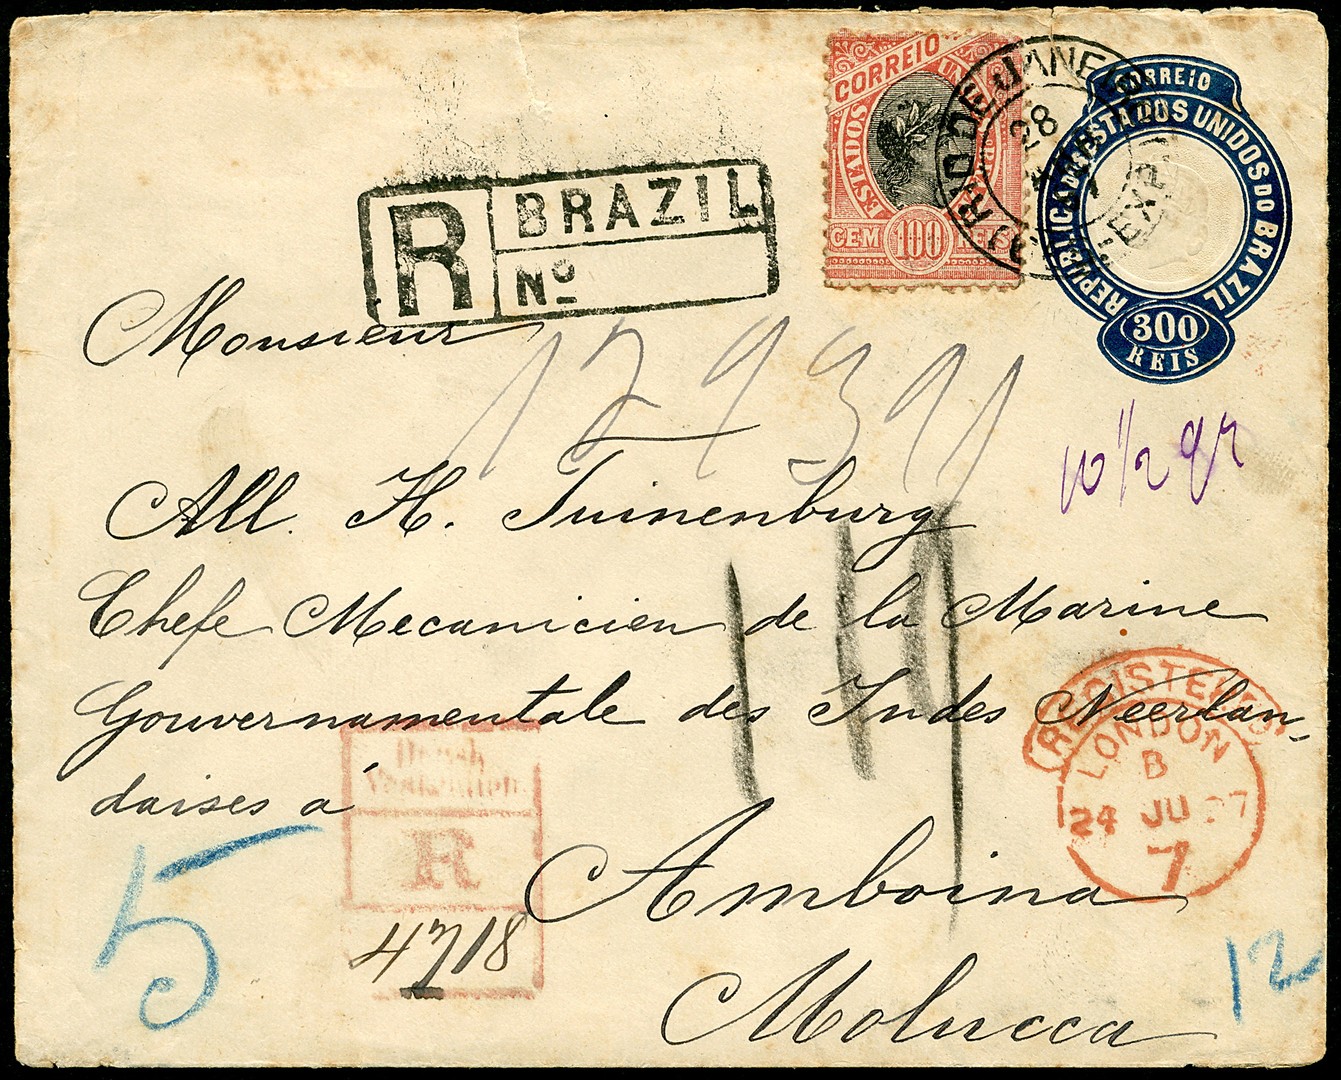 CORREIO
ESTADOS
CEM 100 REIS
RIO DE JANEIRO
28
EXP
CORREIO
REPUBLICA DOS ESTADOS UNIDOS DO BRAZIL
300
REIS
R BRAZIL
Nº
Monsieur
10 1/2 gr
All. H. Tuinenburg
Chefe Mecanicien de la Marine
Gouvernamentale des Indes Neerlan-
daises à
Amboina
Molucca
REGISTERED
LONDON
B
24 JU 97
7
R
4718
5
12